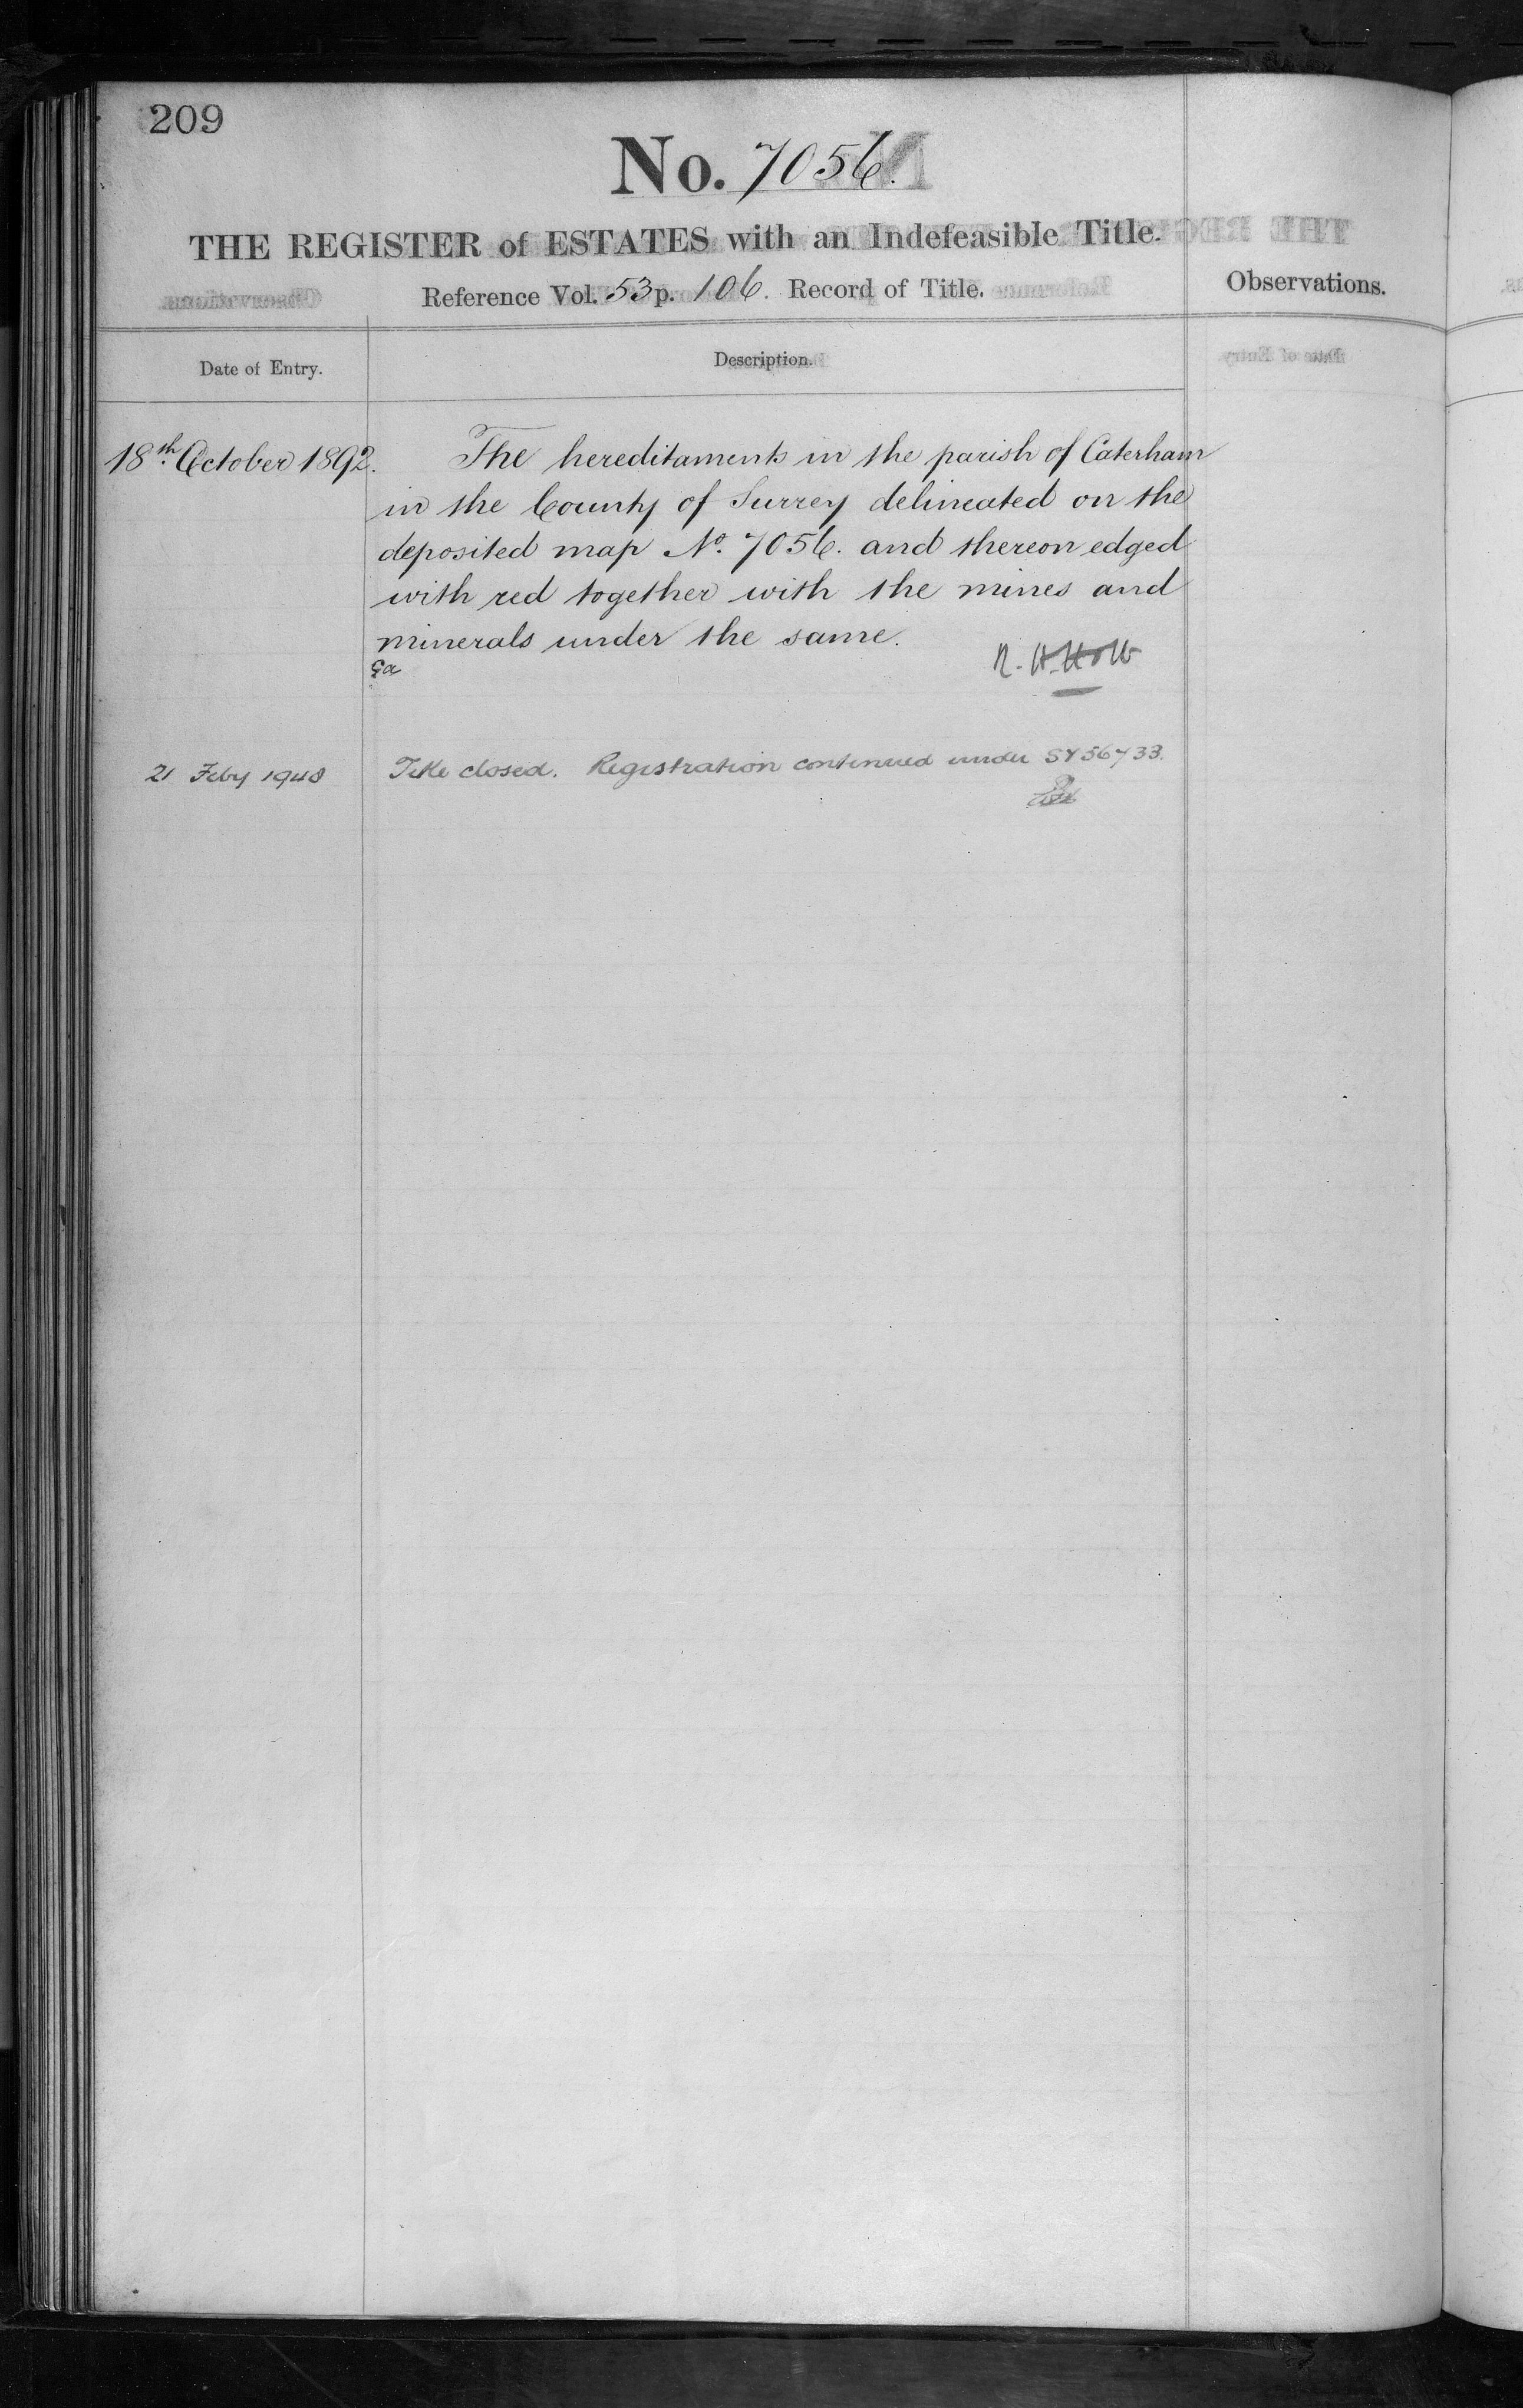 209
No. 7056.
THE REGISTER of ESTATES with an Indefeasible Title.
Reference Vol. 53 p. 106. Record of Title.
Observations.
Date of Entry.
Description.
18th October 1892.
The hereditaments in the parish of Caterham
in the County of Surrey delineated on the
deposited map No. 7056. and thereon edged
with red together with the mines and
minerals under the same.
R. H. Holt
21 Feby 1948
Title closed. Registration continued under SY56733.